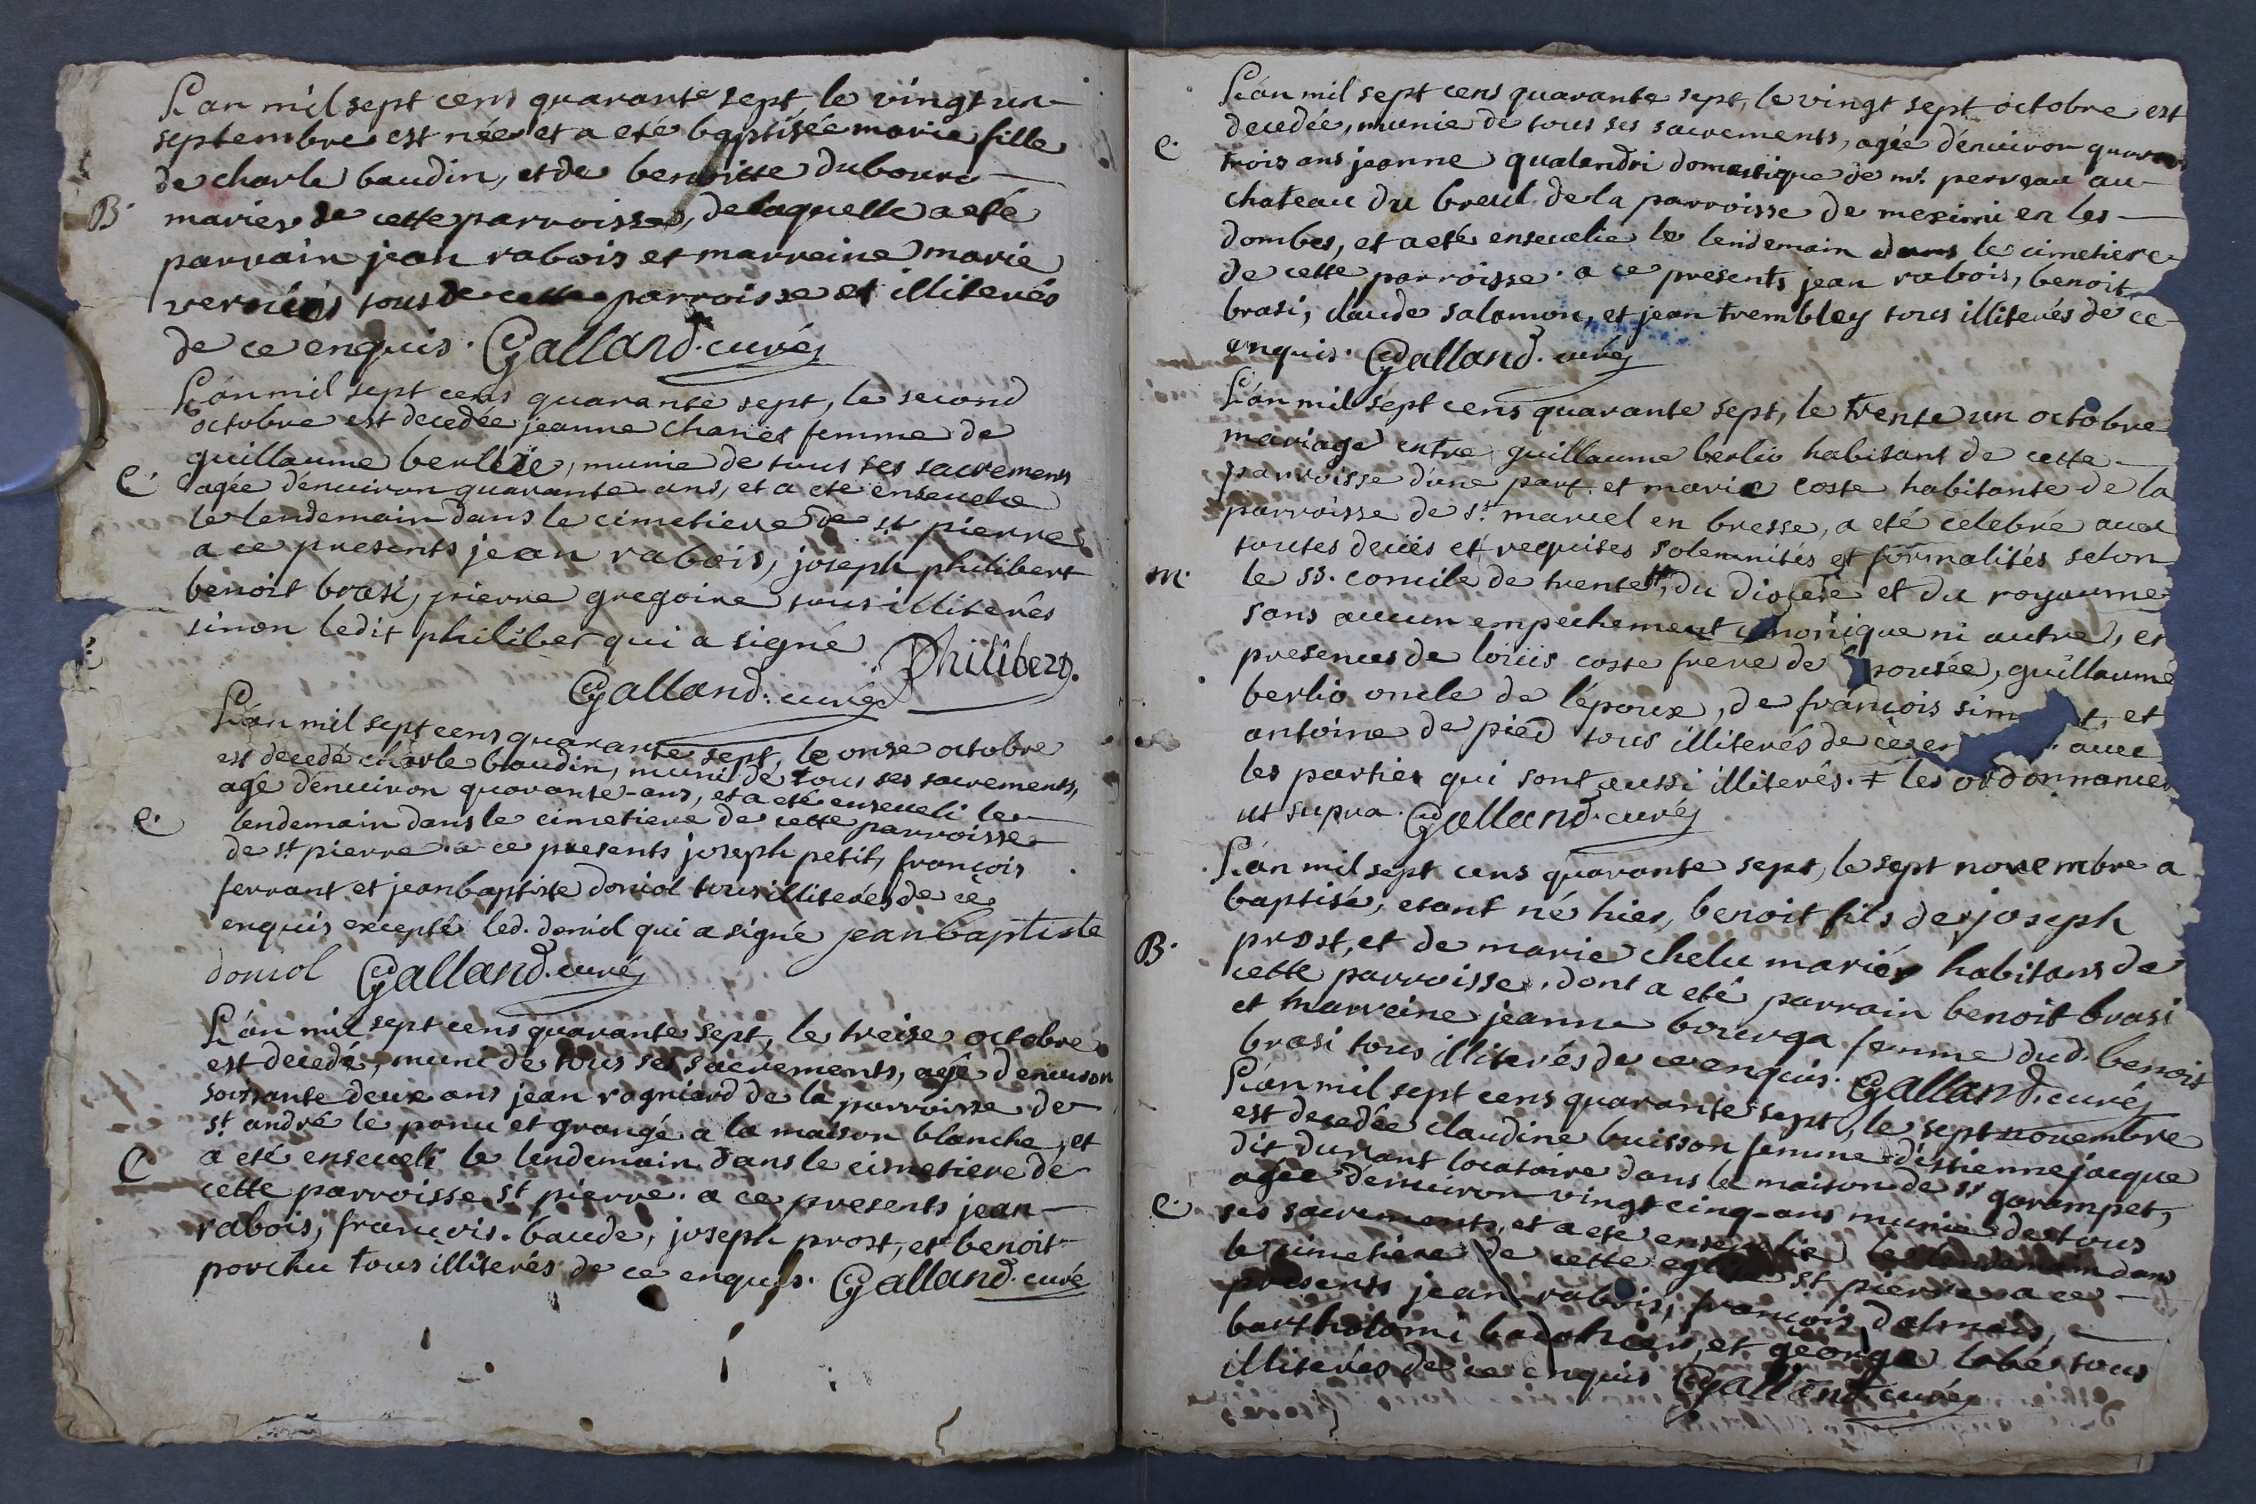 L'an mil sept cens quarante sept, le vingt un
septembre est née et a eté baptisée marie fille
de charle baudin, et de benoitte dubourc
B.
mariez de cette parroisse, de laquelle a eté
parrain jean rabois et marreine marie
tous de cette parroisse et illiterés
de ce enquis. Galland. curé
L'an mil sept cens quarante sept, le second
octobre est decedée jeanne femme de
guillaume munie de tous ses sacremens
C.
agée d'enuiron quarante ans, et a ete enseuelie
le lendemain dans le cimetiere de st pierre
a ce presents jean rabois, joseph philibert
benoit brasi, pierre gregoire tous illiterés
sinon ledit philibet qui a signé
Philibert.
Galland. curé
L'an mil sept cens quarante sept, le onse octobre
est decedé charle baudin, muni de tous ses sacrements,
agé d'enuiron quarante-ans, et a eté enseueli le
C.
lendemain dans le cimetiere de cette parroisse
de st pierre a ce presents joseph petit, françois
ferrant et jeanbaptiste doniol tous illiterés de ce
enquis excepté led. doniol qui a signé jeanbaptiste
doniol Galland. curé
L'an mil sept cens quarante sept, le treise octobre
est decedé, muni de tous ses sacrements, agé d'enuiron
soissante deux ans jean rogniard de la parroisse de
st. andré le panu et grangé a la maison blanche, et
C
a eté enseueli le lendemain dans le cimetiere de
cette parroisse st pierre. a ce presents jean
rabois, françois baude, joseph prost, et benoit
porchu tous illiterés de ce enquis. Galland. curé
L'an mil sept cens quarante sept, le vingt sept octobre est
decedée, munie de tous ses sacrements, agée d'enuiron
C.
trois ans jeanne qualandri domestique de mr. perreau au
chateau du breul de la parroisse de meximi en les
dombes, et a eté enseuelie le lendemain dans le cimetiere
de cette parroisse. a ce presents jean rabois, benoit
brasi, claude salomon, et jean trembley tous illiterés de ce
enquis. Galland. curé
L'an mil sept cens quarante sept, le trente un octobre
mariage entre guillaume berlio habitant de cette
parroisse d'une part et marie coste habitante de la
parroisse de st. marcel en bresse, a eté celebré auec
toutes deues et requises solemnités et formalités selon
m.
le ss. concile de trente, du diocese et du royaume
sans aucun empechement canonique ni autre, es
presences de louis coste frere de l'epousée, guillaume
berlio oncle de l'epoux, de françois et
antoine de pied tous illiterés de ce auec
les parties qui sont aussi illiterés. ‡ les ordonnances
ut supra. Galland. curé
L'an mil sept cens quarante sept, le sept novembre a
baptisé, etant né hier, benoit fils de joseph
B.
prost, et de marie chelu mariés habitans de
cette parroisse. dont a eté parrain benoit brasi
et marreine jeanne bourga femme dud. benoit
brasi tous illiterés de ce enquis. Galland. curé
L'an mil sept cens quarante sept, le sept novembre
est decedée claudine buisson femme d'estienne jacque
dit durant locataire dans la maison de sr garampet,
agée d'enuiron vingt cinq-ans munie de tous
C.
ses sacrements, et a eté enseuelie le lendemain dans
le cimetiere de cette eglise st pierre a ce
presents jean rabois, françois dalmais,
bartholomi et george labé tous
illiterés de ce enquis Galland. curé